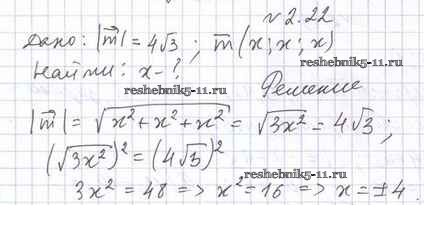 № 2.22
Дано: |m⃗| = 4√3 ; m̅(x; x; x)
Найти: x - ?
reshebnik-tk.my1.ru
Решение
|m⃗| = √(x² + x² + x²) = √(3x²) = 4√3 ;
(√(3x²))² = (4√3)²
reshebnik-tk.my1.ru
3x² = 48 => x² = 16 => x = ±4.